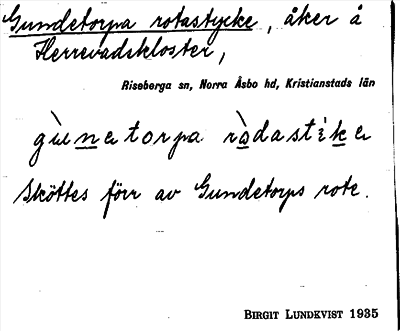 Gundetorpa rotastycke, åker å
Herrevadskloster,
Riseberga sn, Norra Åsbo hd, Kristianstads län
gùnetorpa ròdastìke
Sköttes förr av Gundetorps rote.
BIRGIT LUNDKVIST 1935